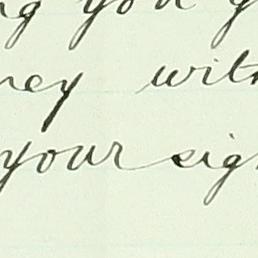 ng you g
ney with
your sig